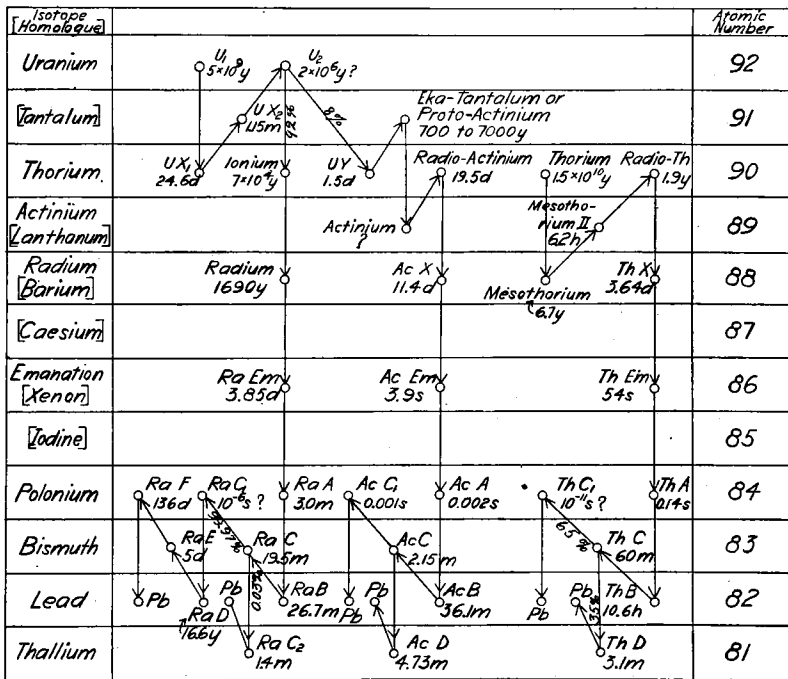 Isotope
[Homologue]
Atomic
Number
Uranium
U₁
5×10⁹y
U₂
2×10⁶y?
92
[Tantalum]
UX₂
1.15m
92%
8%
Eka-Tantalum or
Proto-Actinium
700 to 7000y
91
Thorium.
UX₁
24.6d
Ionium
7×10⁴y
UY
1.5d
Radio-Actinium
19.5d
Thorium
1.5×10¹⁰y
Radio-Th
1.9y
90
Actinium
[Lanthanum]
Actinium
?
Mesotho-
rium II
6.2h
89
Radium
[Barium]
Radium
1690y
Ac X
11.4d
Mesothorium
6.7y
Th X
3.64d
88
[Caesium]
87
Emanation
[Xenon]
Ra Em
3.85d
Ac Em
3.9s
Th Em
54s
86
[Iodine]
85
Polonium
Ra F
136d
Ra C₁
10⁻⁶s?
Ra A
3.0m
Ac C₁
0.001s
Ac A
0.002s
Th C₁
10⁻¹¹s?
Th A
0.14s
84
Bismuth
Ra E
5d
99.97%
Ra C
19.5m
Ac C
2.15m
65%
Th C
60m
83
Lead
Pb
Ra D
16.6y
Pb
0.03%
Ra B
26.7m
Pb
Pb
Ac B
36.1m
Pb
Pb
35%
Th B
10.6h
82
Thallium
Ra C₂
1.4m
Ac D
4.73m
Th D
3.1m
81